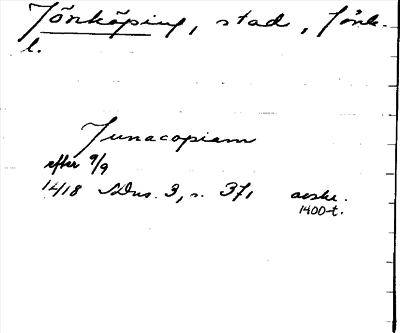 Jönköping, stad, Jönk.
l.
Junacopiam
efter 9/9
1418 SDns. 3, s. 371 avskr.
1400-t.